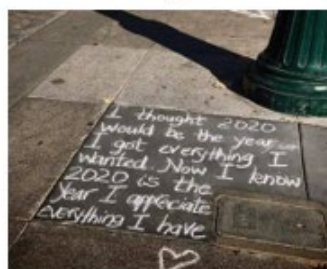 I thought 2020
would be the year
I got everything I
wanted. Now I know
2020 is the
Year I appeciate
everything I have